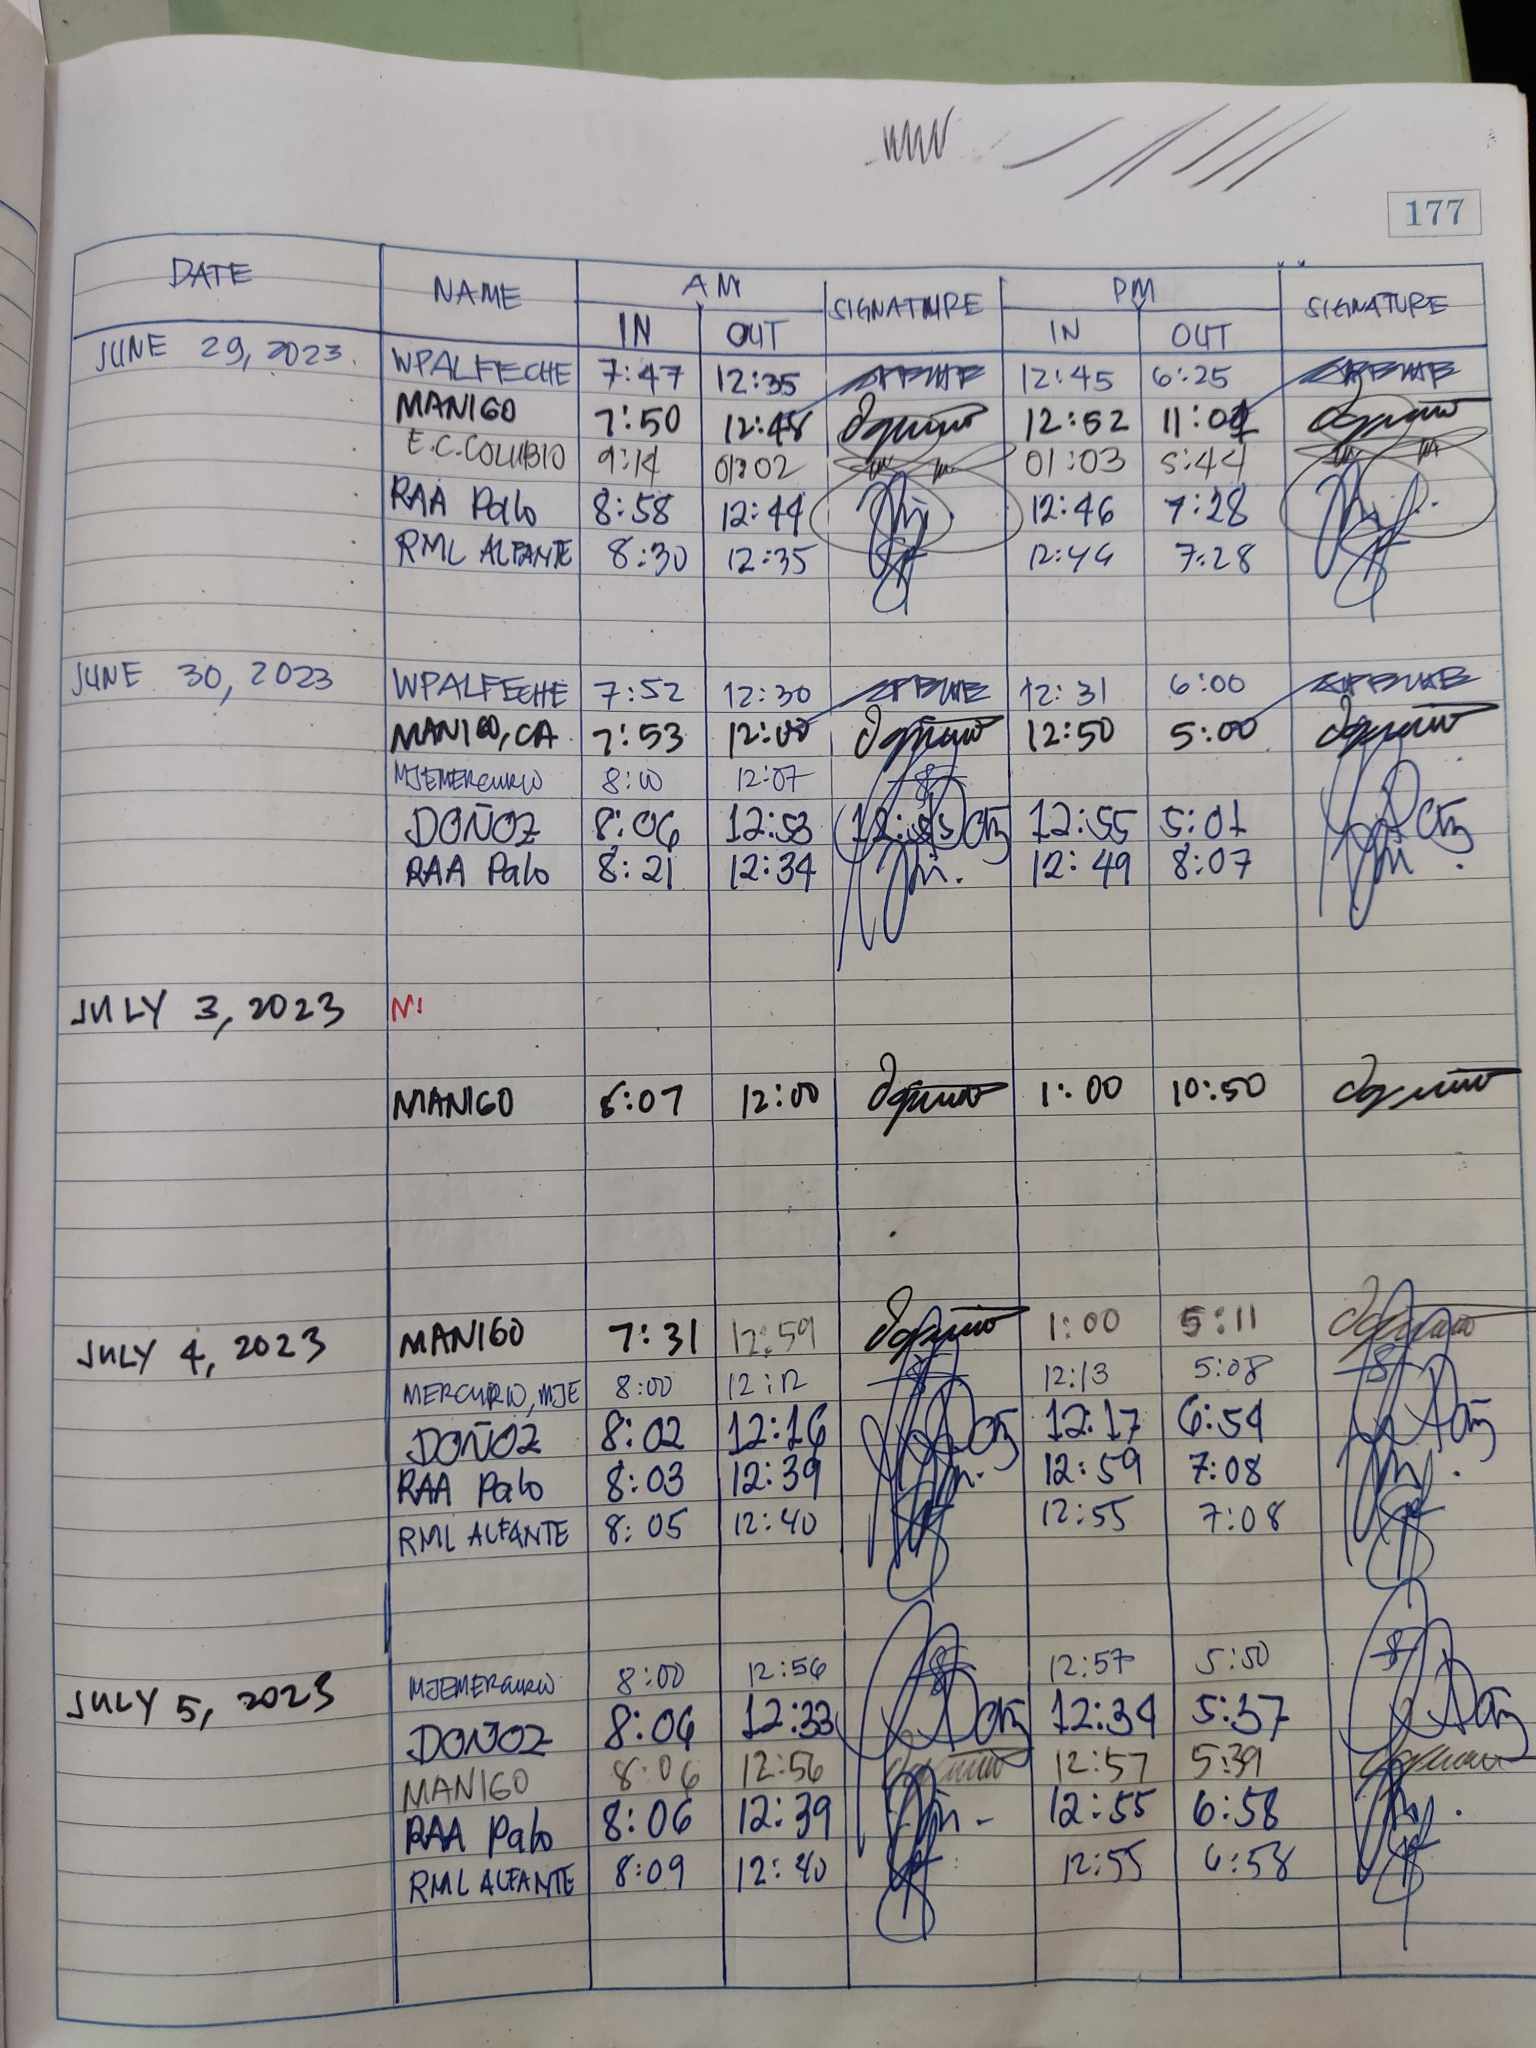 177
DATE NAME AM SIGNATURE PM SIGNATURE
IN OUT IN OUT
JUNE 29, 2023 WPALFECHE 7:47 12:35 12:45 6:25
MANIGO 7:50 12:48 12:52 11:04
E.C.COLUBIO 9:14 01:02 01:03 5:44
RAA Palo 8:58 12:44 12:46 7:28
RML ALFANTE 8:30 12:35 12:44 7:28
JUNE 30, 2023 WPALFECHE 7:52 12:30 12:31 6:00
MANIGO, CA 7:53 12:00 12:50 5:00
MJEMERCURIO 8:00 12:07
DOÑOZ 8:06 12:53 12:55 5:01
RAA Palo 8:21 12:34 12:49 8:07
JULY 3, 2023
MANIGO 6:07 12:00 1:00 10:50
JULY 4, 2023 MANIGO 7:31 12:59 1:00 5:11
MERCURIO, MJE 8:00 12:12 12:13 5:08
DOÑOZ 8:02 12:16 12:17 6:54
RAA Palo 8:03 12:39 12:59 7:08
RML ALFANTE 8:05 12:40 12:55 7:08
JULY 5, 2023 MJEMERCURIO 8:00 12:56 12:57 5:50
DOÑOZ 8:06 12:33 12:34 5:37
MANIGO 8:06 12:56 12:57 5:39
RAA Palo 8:06 12:39 12:55 6:58
RML ALFANTE 8:09 12:40 12:55 6:58